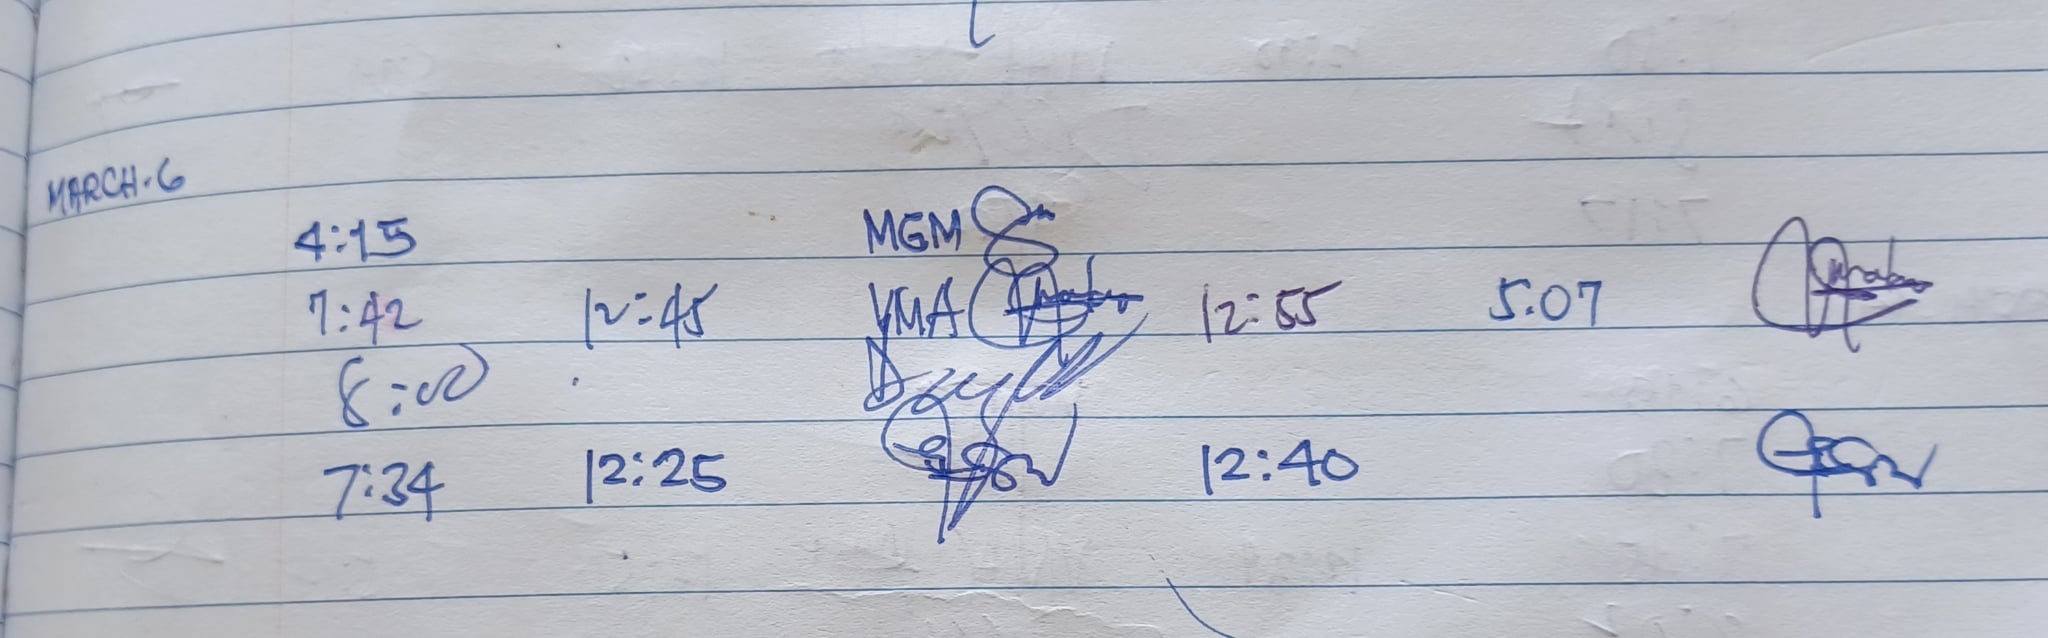 MARCH-6
4:15 MGM
7:42 12:45 VMA 12:55 5.07
8:00
7:34 12:25 12:40